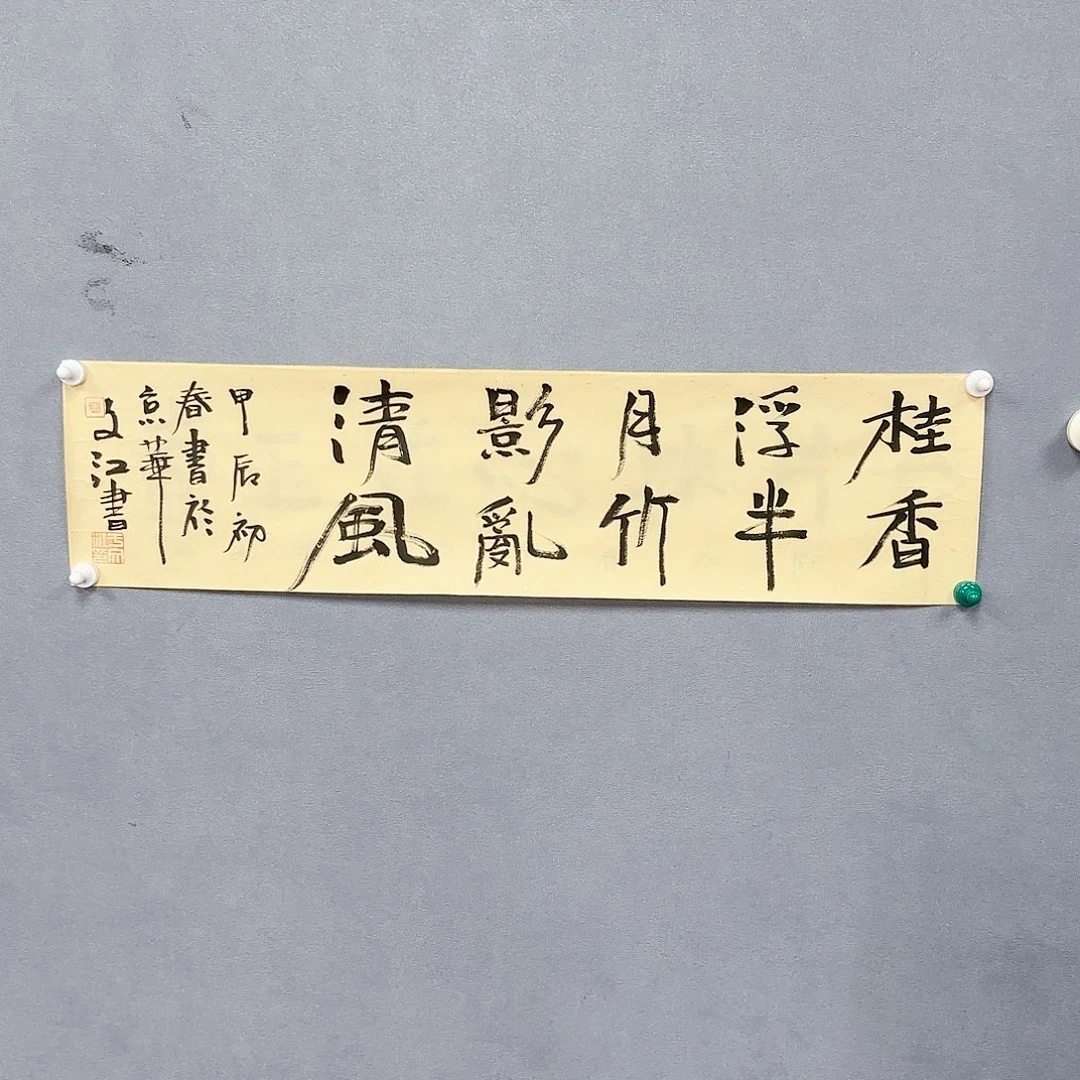 桂香
浮半
月竹
影亂
清風
甲辰初
春書於
京華
文江書